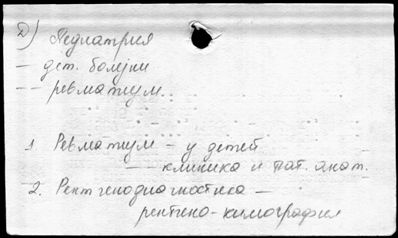 D) Педиатрия
— дет. болезни
— — ревматизм.
1 Ревматизм — у детей
— — клиника и пат. анат.
2. Рентгенодиагностика —
рентгено-кимография